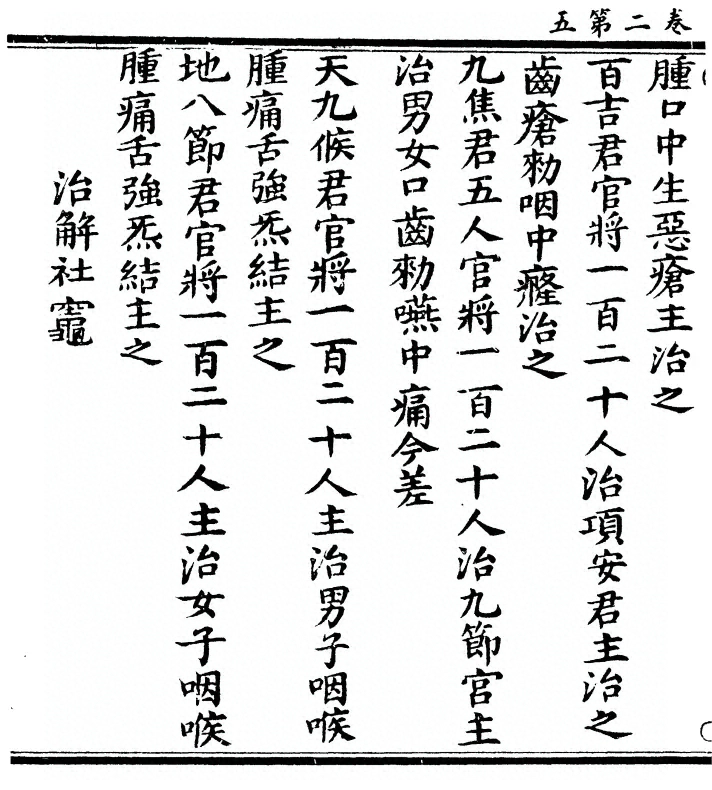 卷二第五
腫口中生惡瘡主治之
百吉君官將一百二十人治項安君主治之
齒瘡勑咽中癃治之
九焦君五人官將一百二十人治九節宮主
治男女口齒勑嚥中痛令差
天九候君官將一百二十人主治男子咽喉
腫痛舌強炁結主之
地八節君官將一百二十人主治女子咽喉
腫痛舌強炁結主之
治解社竈